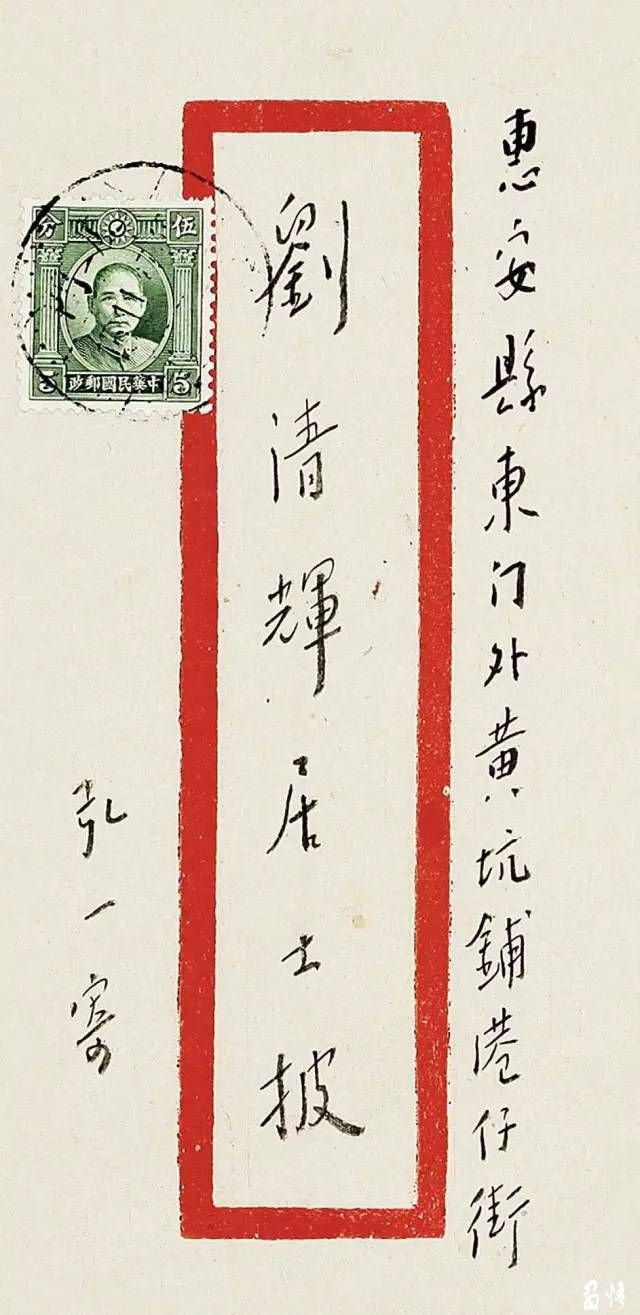 惠安縣東门外黄坑鋪港仔街
劉清輝居士披
弘一寄
伍分
中華民國郵政
5 5